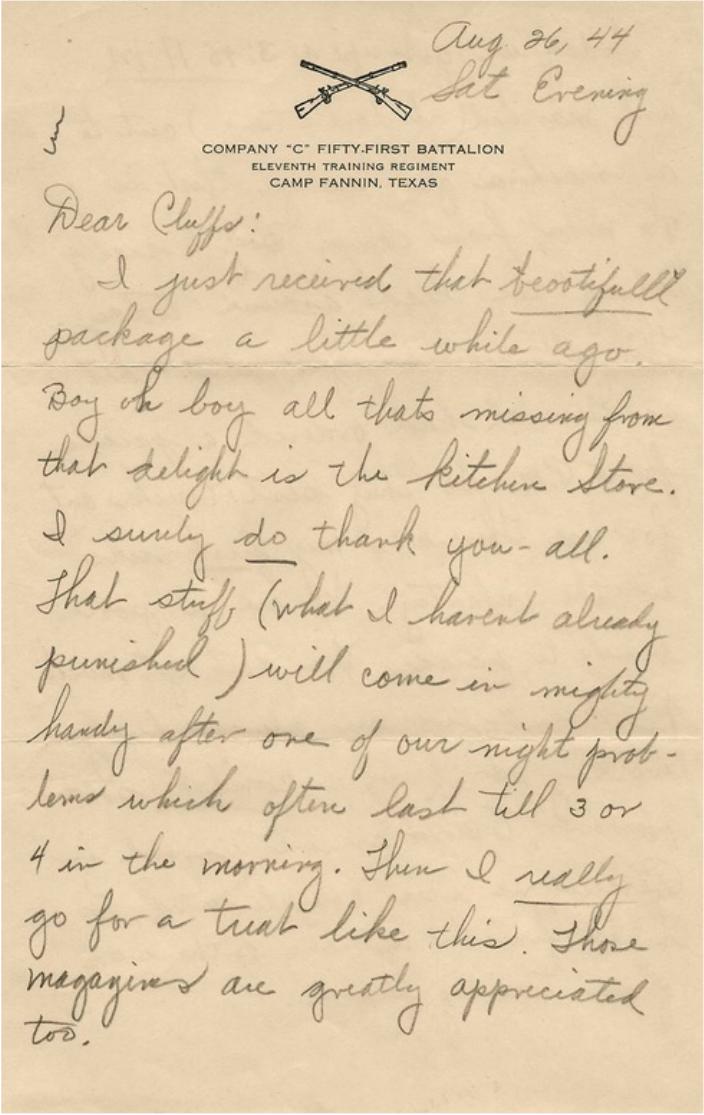 Aug 26, 44
Sat Evening
COMPANY "C" FIFTY-FIRST BATTALION
ELEVENTH TRAINING REGIMENT
CAMP FANNIN, TEXAS
Dear Cluffs:
I just received that beootifulll
package a little while ago.
Boy oh boy all thats missing from
that delight is the kitchen stove.
I surely do thank you-all.
That stuff (what I havent already
punished) will come in mighty
handy after one of our night prob-
lems which often last till 3 or
4 in the morning. Then I really
go for a treat like this. Those
magazines are greatly appreciated
too.